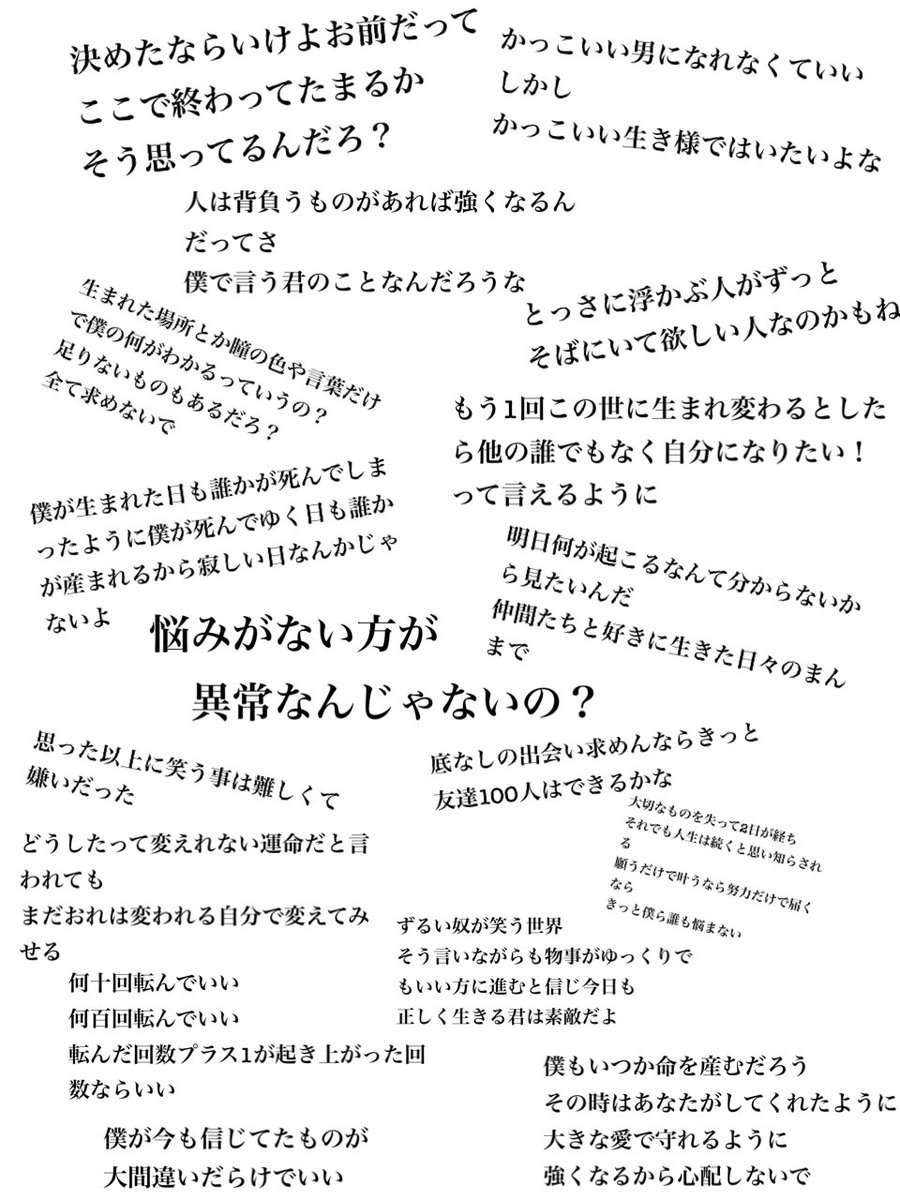 決めたならいけよお前だって
ここで終わってたまるか
そう思ってるんだろ？
かっこいい男になれなくていい
しかし
かっこいい生き様ではいたいよな
人は背負うものがあれば強くなるん
だってさ
僕で言う君のことなんだろうな
とっさに浮かぶ人がずっと
そばにいて欲しい人なのかもね
生まれた場所とか瞳の色や言葉だけ
で僕の何がわかるっていうの？
足りないものもあるだろ？
全て求めないで
もう1回この世に生まれ変わるとした
ら他の誰でもなく自分になりたい！
って言えるように
僕が生まれた日も誰かが死んでしま
ったように僕が死んでゆく日も誰か
が産まれるから寂しい日なんかじゃ
ないよ
明日何が起こるなんて分からないか
ら見たいんだ
仲間たちと好きに生きた日々のまん
まで
悩みがない方が
異常なんじゃないの？
思った以上に笑う事は難しくて
嫌いだった
底なしの出会い求めんならきっと
友達100人はできるかな
大切なものを失って2日が経ち
それでも人生は続くと思い知らされ
る
願うだけで叶うなら努力だけで届く
なら
きっと僕ら誰も悩まない
どうしたって変えれない運命だと言
われても
まだおれは変われる自分で変えてみ
せる
ずるい奴が笑う世界
そう言いながらも物事がゆっくりで
もいい方に進むと信じ今日も
正しく生きる君は素敵だよ
何十回転んでいい
何百回転んでいい
転んだ回数プラス1が起き上がった回
数ならいい
僕もいつか命を産むだろう
その時はあなたがしてくれたように
大きな愛で守れるように
強くなるから心配しないで
僕が今も信じてたものが
大間違いだらけでいい